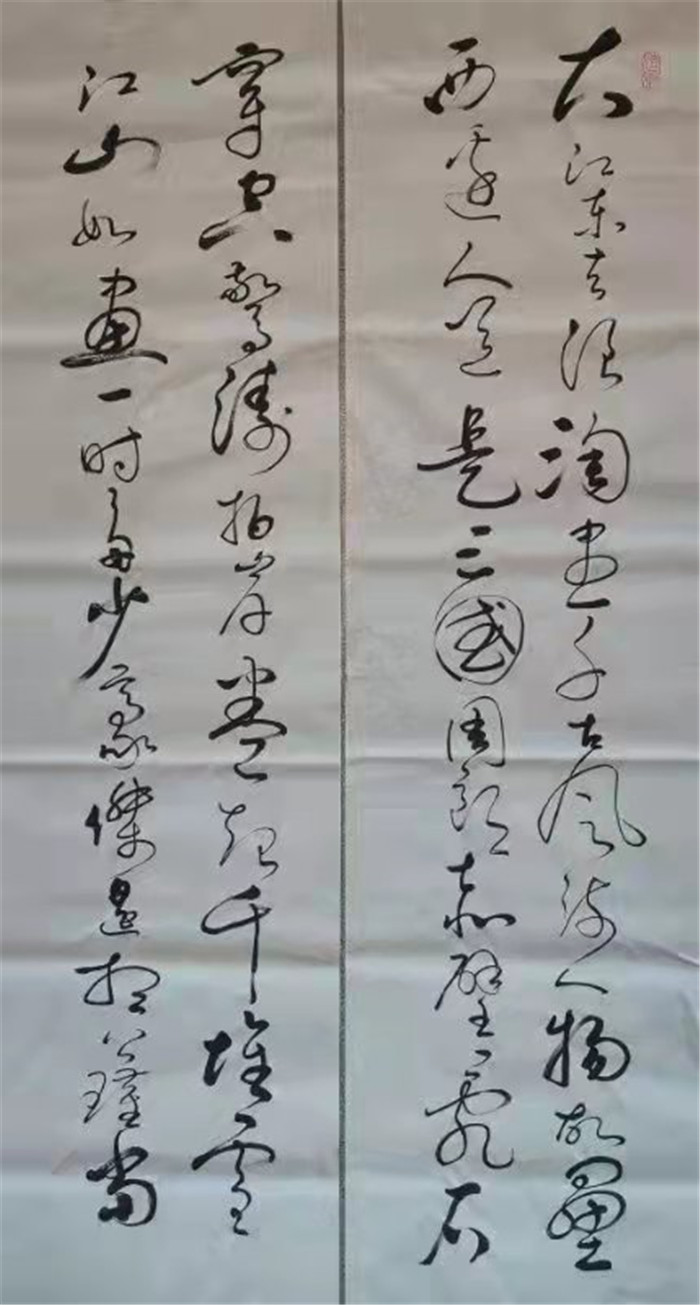 大江东去浪淘尽千古风流人物故垒
西边人道是三国周郎赤壁乱石
穿空惊涛拍岸卷起千堆雪
江山如画一时多少豪杰遥想公瑾当